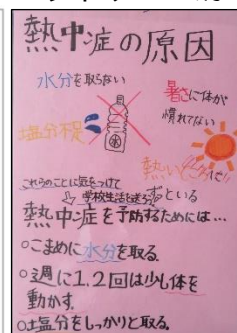 熱中症の原因
水分を取らない
暑さに体が
慣れてない
塩分不足
熱いところに
ずといる
これらのことに気をつけて
学校生活を送ろう
熱中症を予防するためには…
○こまめに水分を取る。
○週に1.2回は少し体を
動かす。
○塩分をしっかりと取る。